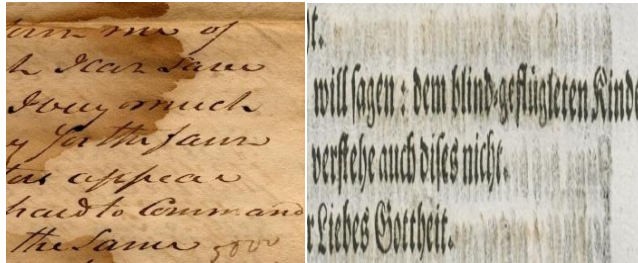 me of
I can Save
very much
for the
appear
hard to Command
the Same
will ſagen : dem blind-geflügleten Kinde
verſtehe auch diſes nicht.
Liebes Gottheit.